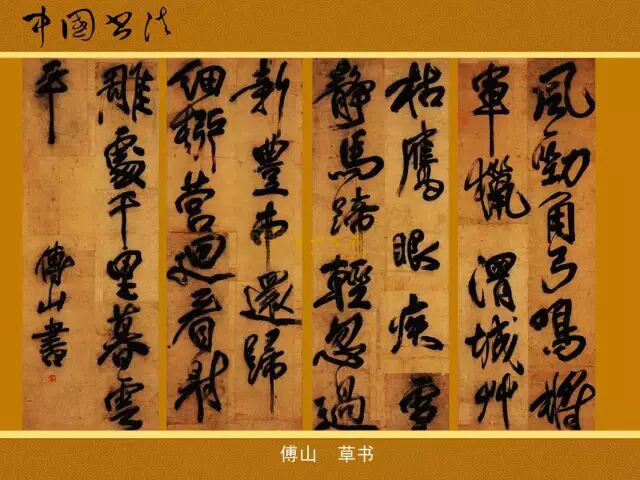 中国书法
風勁角弓鳴將
軍獵渭城艸
枯鷹眼疾雪
靜馬蹄輕忽過
新豐市還歸
細柳營迴看射
雕處千里暮雲
平
傅山書
傅山 草书